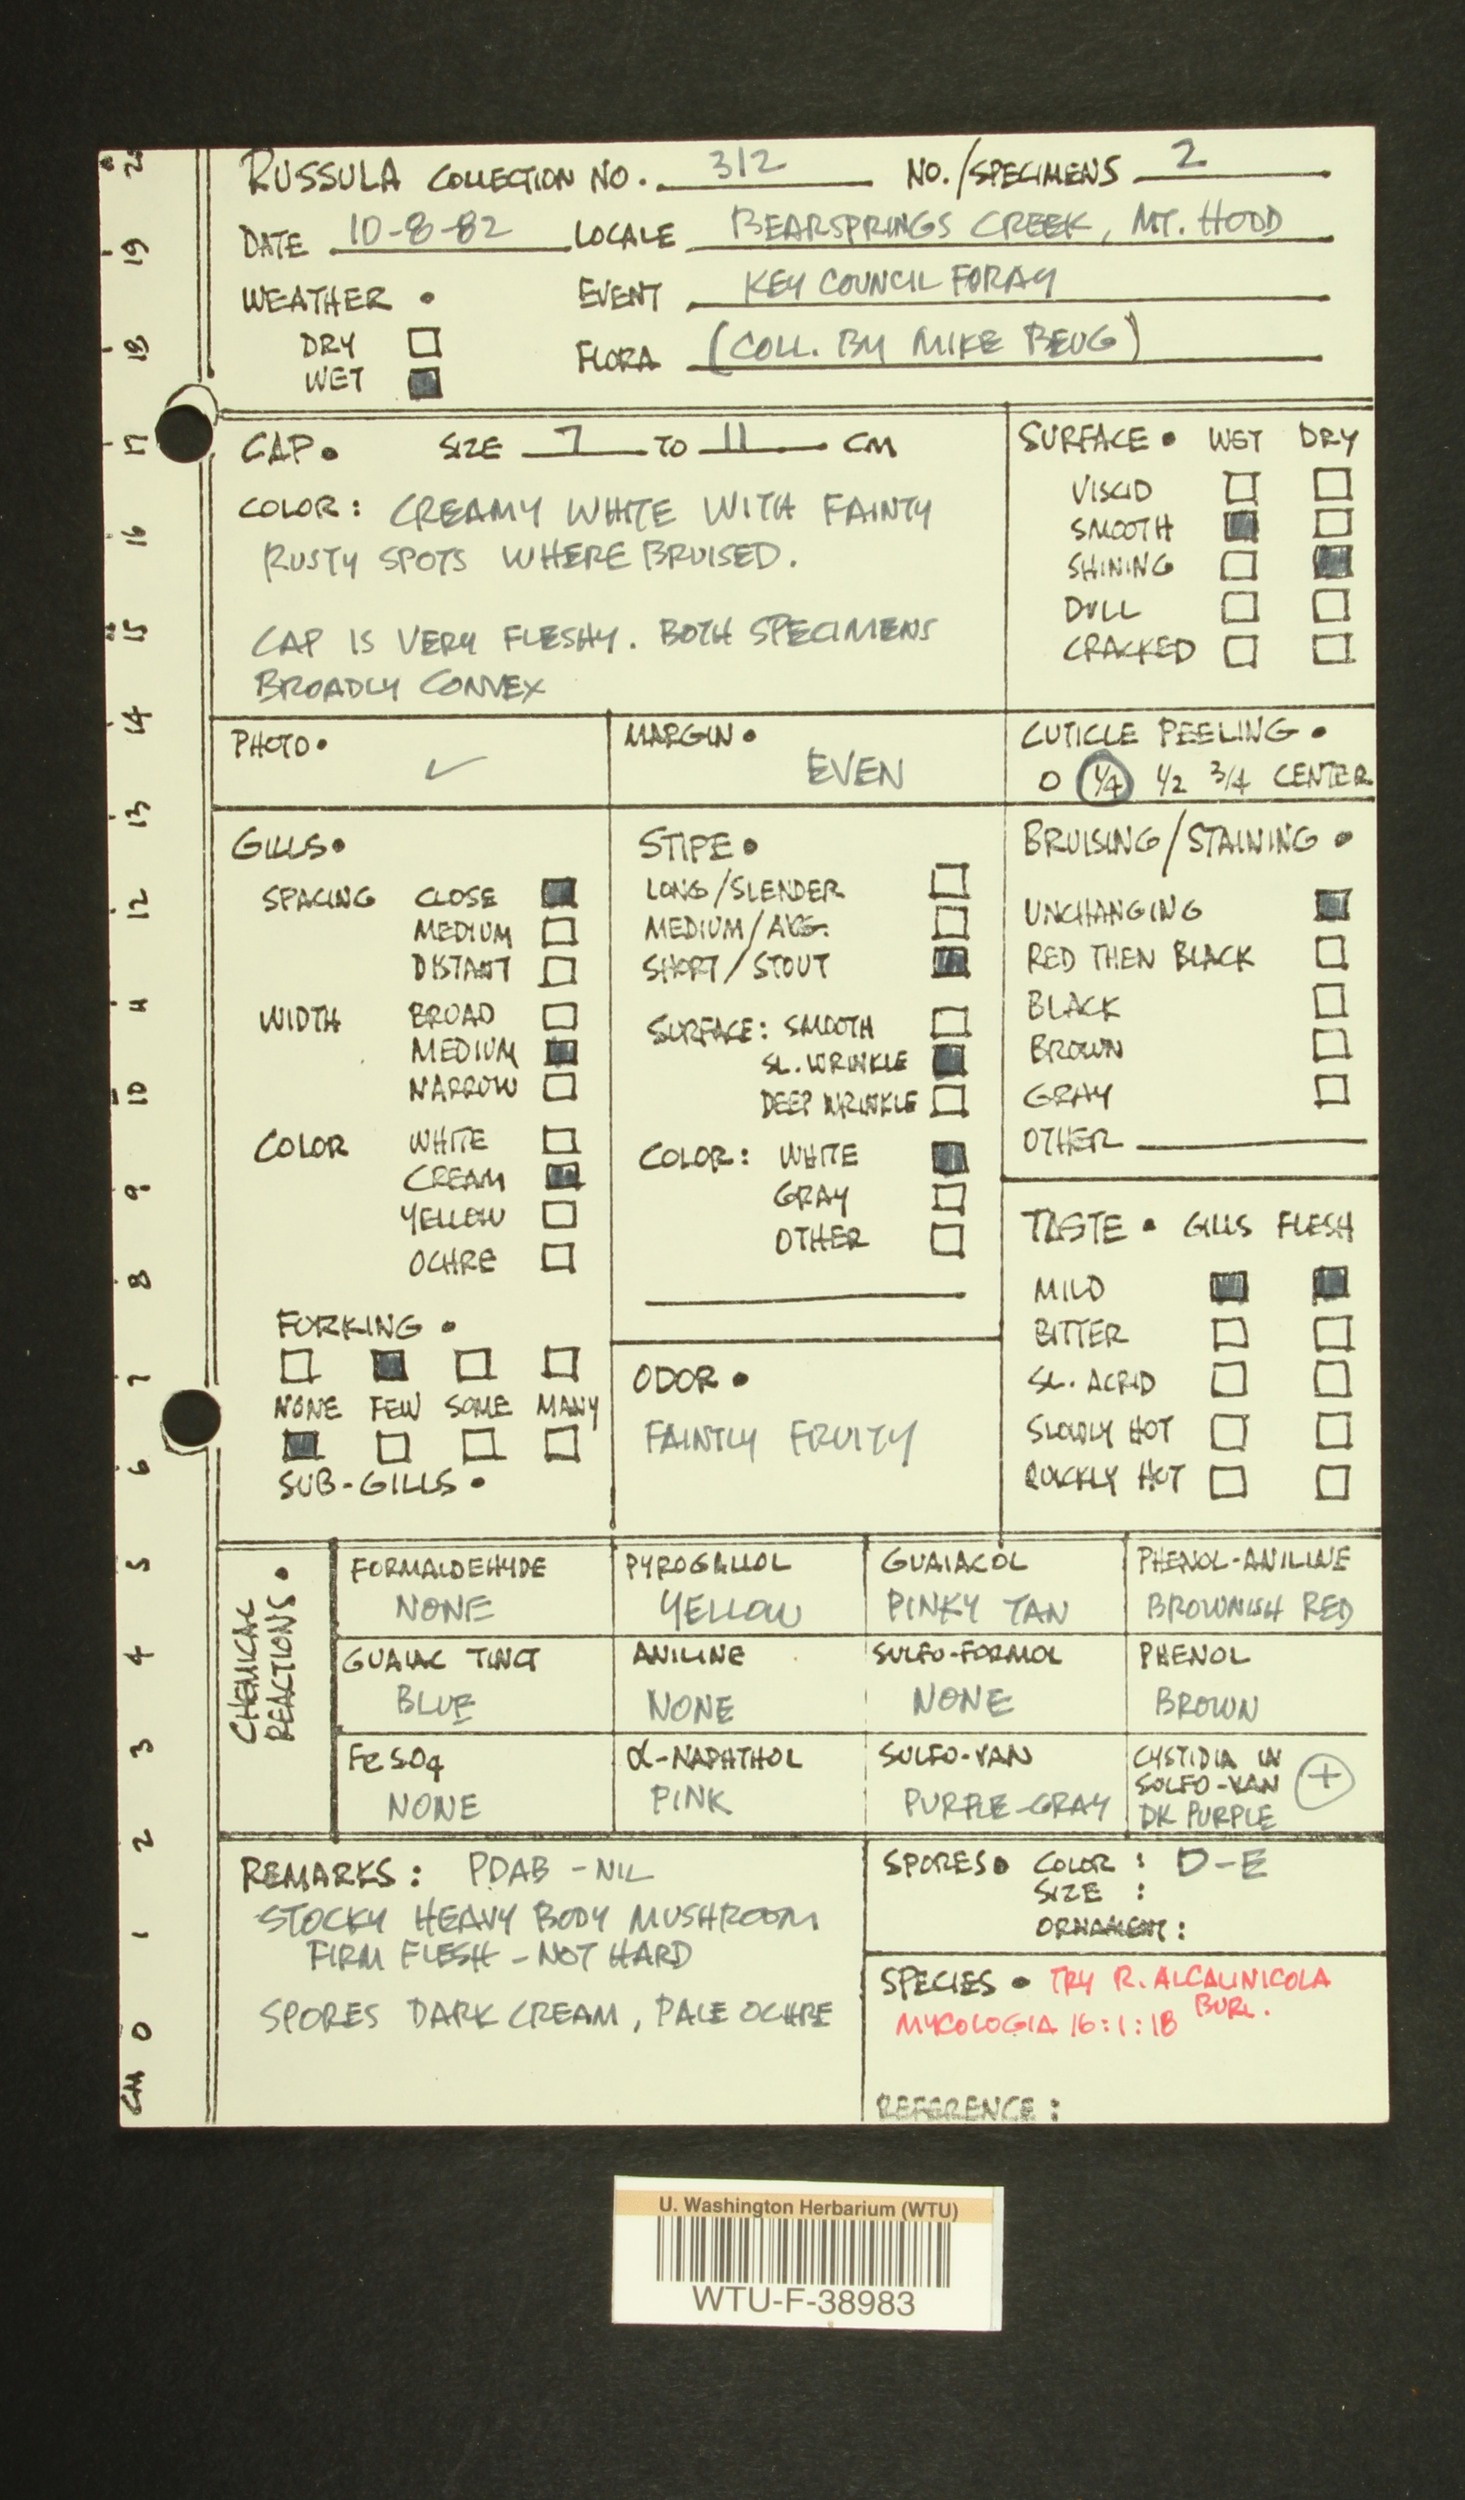 RUSSULA COLLECTION NO. 312 NO./SPECIMENS 2
DATE 10-8-82 LOCALE BEARSPRINGS CREEK, MT. HOOD
WEATHER • EVENT KEY COUNCIL FORAY
DRY FLORA (COLL. BY MIKE BEUG)
WET
CAP • SIZE 7 TO 11 CM
COLOR: CREAMY WHITE WITH FAINTY
RUSTY SPOTS WHERE BRUISED.
CAP IS VERY FLESHY. BOTH SPECIMENS
BROADLY CONVEX
SURFACE • WET DRY
VISCID
SMOOTH
SHINING
DULL
CRACKED
PHOTO • ✓
MARGIN •
EVEN
CUTICLE PEELING •
0 1/4 1/2 3/4 CENTER
GILLS •
SPACING CLOSE
MEDIUM
DISTANT
WIDTH BROAD
MEDIUM
NARROW
COLOR WHITE
CREAM
YELLOW
OCHRE
FORKING •
NONE FEW SOME MANY
SUB-GILLS •
STIPE •
LONG/SLENDER
MEDIUM/AVG.
SHORT/STOUT
SURFACE: SMOOTH
SL. WRINKLE
DEEP WRINKLE
COLOR: WHITE
GRAY
OTHER
ODOR •
FAINTLY FRUITY
BRUISING/STAINING •
UNCHANGING
RED THEN BLACK
BLACK
BROWN
GRAY
OTHER
TASTE • GILLS FLESH
MILD
BITTER
SL. ACRID
SLOWLY HOT
QUICKLY HOT
CHEMICAL REACTIONS •
FORMALDEHYDE PYROGALLOL GUAIACOL PHENOL-ANILINE
NONE YELLOW PINKY TAN BROWNISH RED
GUAIAC TINCT ANILINE SULFO-FORMOL PHENOL
BLUE NONE NONE BROWN
FeSO4 α-NAPHTHOL SULFO-VAN CYSTIDIA IN
SULFO-VAN +
NONE PINK PURPLE-GRAY DK PURPLE
REMARKS: PDAB - NIL
STOCKY HEAVY BODY MUSHROOM
FIRM FLESH - NOT HARD
SPORES DARK CREAM, PALE OCHRE
SPORES • COLOR: D-E
SIZE:
ORNAMENT:
SPECIES • TRY R. ALCALINICOLA
BURL.
MYCOLOGIA 16:1:18
REFERENCE:
CM 0 1 2 3 4 5 6 7 8 9 10 11 12 13 14 15 16 17 18 19 20
U. Washington Herbarium (WTU)
WTU-F-38983